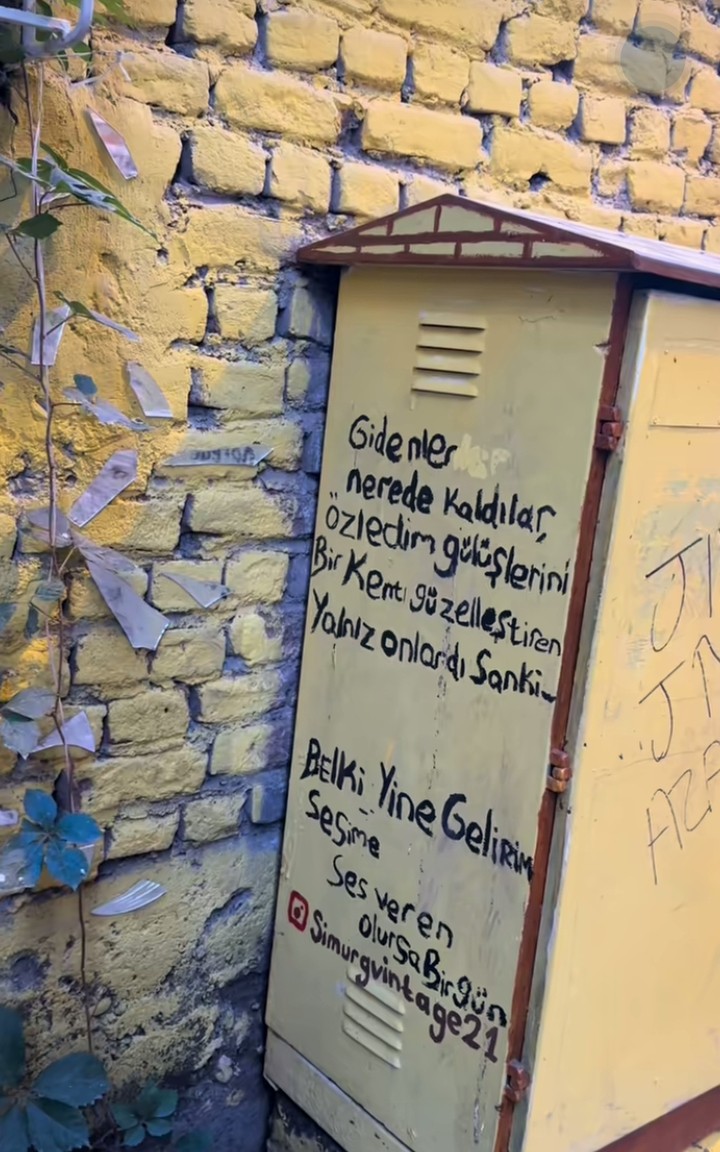 Gidenler
nerede kaldılar,
özledim gülüşlerini
Bir Kenti güzelleştiren
Yalnız onlardı Sanki
BELKi Yine GeliRiM
Sesime
Ses veren
olursa Bir gün
Simurgvintage21